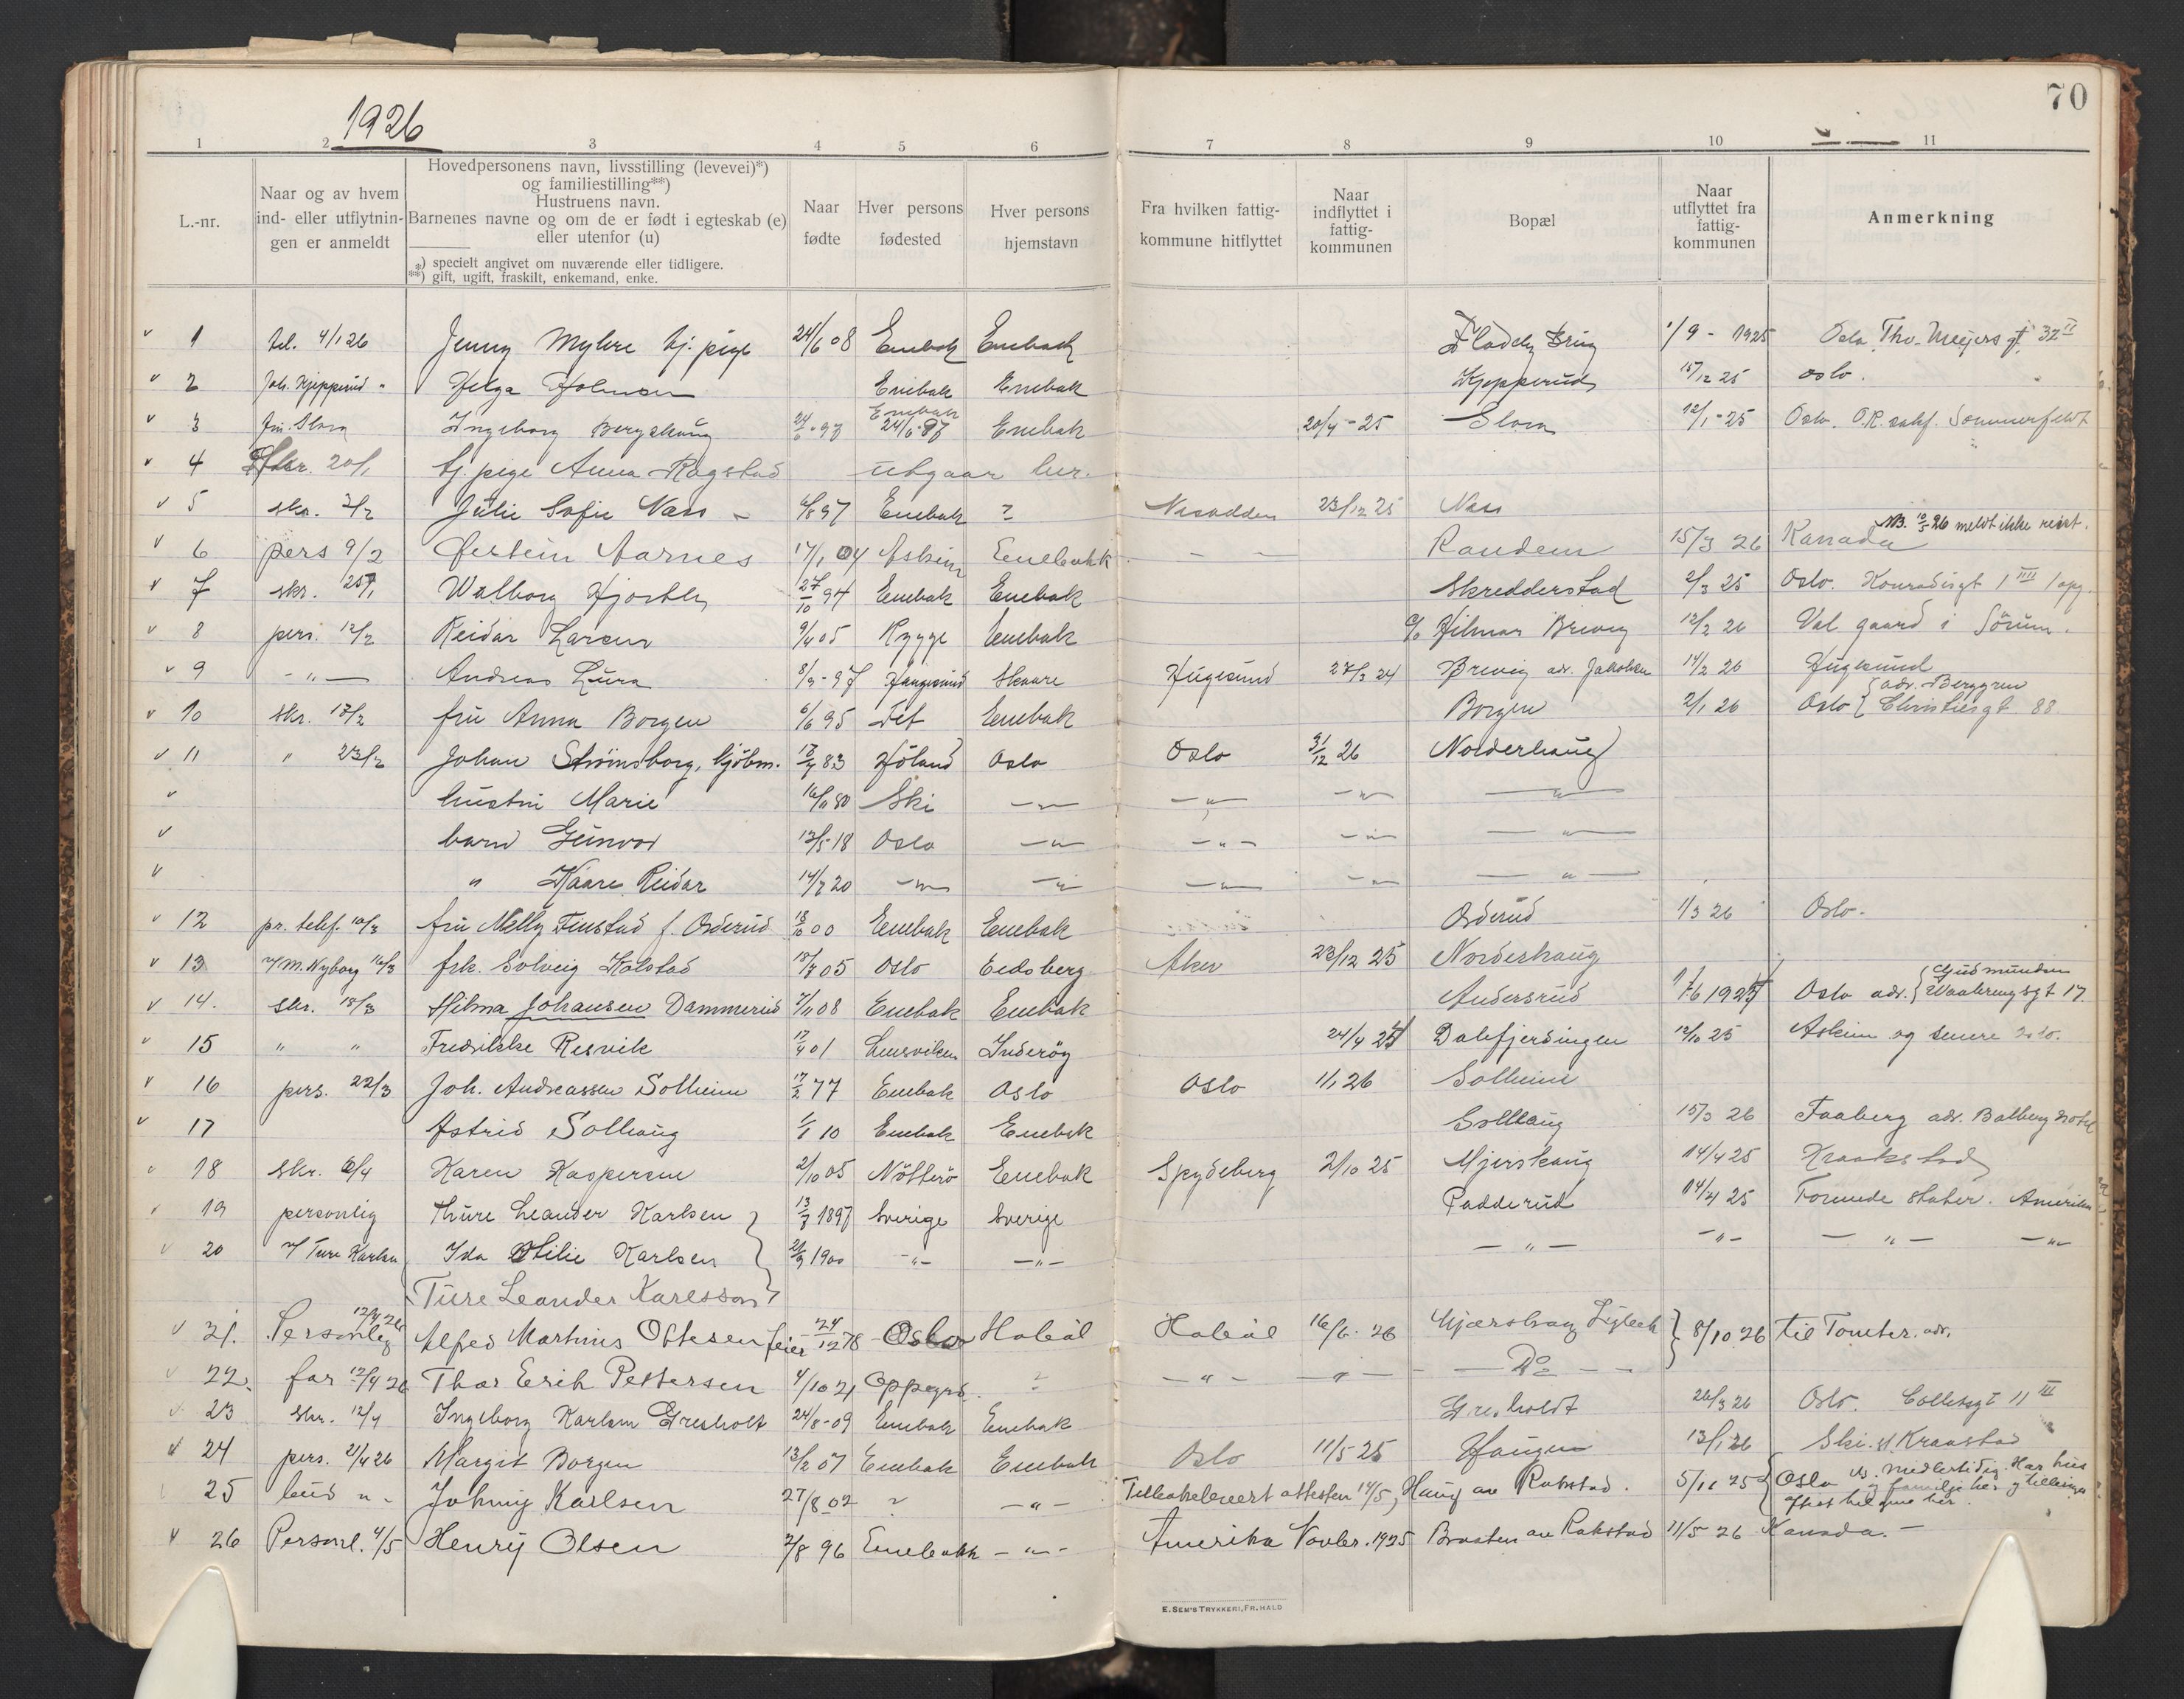 1926
70
1 2 3 4 5 6 7 8 9 10 11
L.-nr.
Naar og av hvem ind- eller utflytningen er anmeldt
Hovedpersonens navn, livsstilling (levevei)*)
og familiestilling**)
Hustruens navn.
Barnenes navne og om de er født i egteskab (e)
eller utenfor (u)
*) specielt angivet om nuværende eller tidligere.
**) gift, ugift, fraskilt, enkemand, enke.
Naar fødte
Hver persons fødested
Hver persons hjemstavn
Fra hvilken fattigkommune hitflyttet
Naar indflyttet i fattigkommunen
Bopæl
Naar utflyttet fra fattigkommunen
Anmerkning
1 tel. 4/1 26 Jenny Myhre tj. pige 24/6 08 Enebak Enebak Fladeby Brug 1/9 - 1925 Oslo Thv. Meyers gt. 32 II
2 Joh. Kjepperud " Helga Holmsen Enebak Enebak Kjepperud 15/12 25 Oslo.
3 fru Slora Ingeborg Bergskaug 24/6 - 97 Enebak 24/6 - 97 Enebak 20/4 - 25 Slora 12/1 - 25 Oslo. O.R. Sommerfeldt
4 skr. 20/1 tj. pige Anna Ragstad utgaar her.
5 skr. 2/2 Julie Sofie Næss 6/8 97 Enebak ? Nesodden 23/12 25 Næss
6 pers 9/2 Øistein Aarnes 17/1 04 Askim Enebakk - - Randem 15/3 26 Kanada NB. 10/5 26 meldt ikke reist.
7 skr. 25/1 Walborg Hjorthly 27/10 94 Enebak Enebak Skredderstad 2/3 25 Oslo. Konradisgt 1 IIII 1 opg.
8 pers. 12/2 Reidar Larsen 9/4 05 Rygge Enebak c/o Hilmar Brevig 12/2 26 Val gaard i Sörum.
9 - " - Andreas Lura 8/3 - 97 Haugesund Skaare Hugesund 27/3 24 Brevig adr. Jakobsen 14/2 26 Hugesund
10 skr. 17/2 fru Anna Borgen 6/6 95 Def Enebak Borgen 2/1 26 Oslo { adr. Berggren Christiesgt 88
11 " 23/2 Johan Strömsborg, kjöbm. 17/4 83 Höland Oslo Oslo 31/12 26 Norderhaug
hustru Marie 16/11 80 Ski - " - - " - - " - - " -
barn Gunvor 13/5 18 Oslo - " - - " - - " - - " -
" Kaare Reidar 14/7 20 - " - - " - - " - - " - - " -
12 pr. telf. 10/3 fru Nelly Finstad f. Osderud 18/10 00 Enebak Enebak Osderud 1/3 26 Oslo.
13 v/ M. Nyborg 16/3 frk. Solveig Kolstad 18/7 05 Oslo Eidsberg Aker 23/12 25 Norderhaug
14. skr. 18/3 Hilma Johansen Dammerud 7/11 08 Enebak Enebak Andersrud 1/6 1925 Oslo adr. { Gudmundsen Waalerengsgt 17
15 " " Fredrikke Resvik 17/4 01 Lensviken Inderöy 24/4 25 Dalefjerdingen 10/10 25 Askim og senere Oslo.
16 pers. 22/3 Joh. Andreassen Solheim 17/2 77 Enebak Oslo Oslo 1/1 26 Solheim
17 Astrid Solhaug 1/1 10 Enebak Enebak Solhaug 15/3 26 Faaberg adr. Balberg hotel
18 skr. 6/4 Karen Kaspersen 2/10 05 Nötterö Enebak Spydeberg 2/10 25 Mjerskaug 14/4 25 Kraakstad
19 personlig Thure Leander Karlsen 13/7 1897 Sverige Sverige Padderud 14/4 25 Forenede stater. Amerika
20 v/ Ture Karlsen Ida Otilie Karlsen 21/3 1900 - " - - " - - " - - " - - " - - " -
Ture Leander Karlsson
21. Personlig 12/4 26 Alfred Martinus Oftesen feier 24/12 78 Oslo Hobøl Hobøl 16/6. 26 Mjærskaug 8/10 26 til Tomter. adr.
22. far 12/4 26 Thor Erik Pettersen 4/10 21 Oppegrd. ? - " - - " - Do
23 skr. 12/4 Ingeborg Karlsen Gresholt 24/8 - 09 Enebak Enebak Gresholdt 26/3 26 Oslo. Colletsgt 11 III
24 pers. 21/4 26 Margit Borgen 13/2 07 Enebak Enebak Oslo 11/5 25 Haugen 13/1 26 Ski. st Kraastad
25 bud " - Johnny Karlsen 27/8 02 " - " - Tilbakelevert attesten 14/5, Haug av Rakstad. 5/11 25 { Oslo midlertidig. Har hus og familje her
26 Personl. 4/5 Henry Olsen 7/8 96 Enebakk - " - Amerika Novbr. 1925 Braaten av Rakstad 11/5 26 Kanada. -
E. SEM'S TRYKKERI, FR.HALD